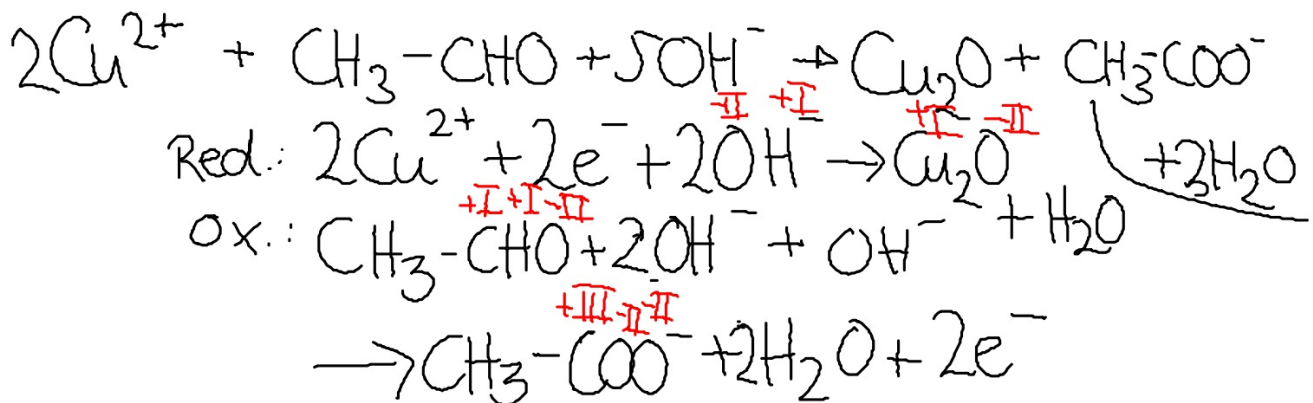 2Cu²⁺ + CH₃-CHO + 5OH⁻ → Cu₂O + CH₃-COO⁻
-II +I +I -II
Red.: 2Cu²⁺ + 2e⁻ + 2OH⁻ → Cu₂O + H₂O
+3H₂O
+I +I -II
Ox.: CH₃-CHO + 2OH⁻ + OH⁻
+III -II -II
→ CH₃-COO⁻ + 2H₂O + 2e⁻